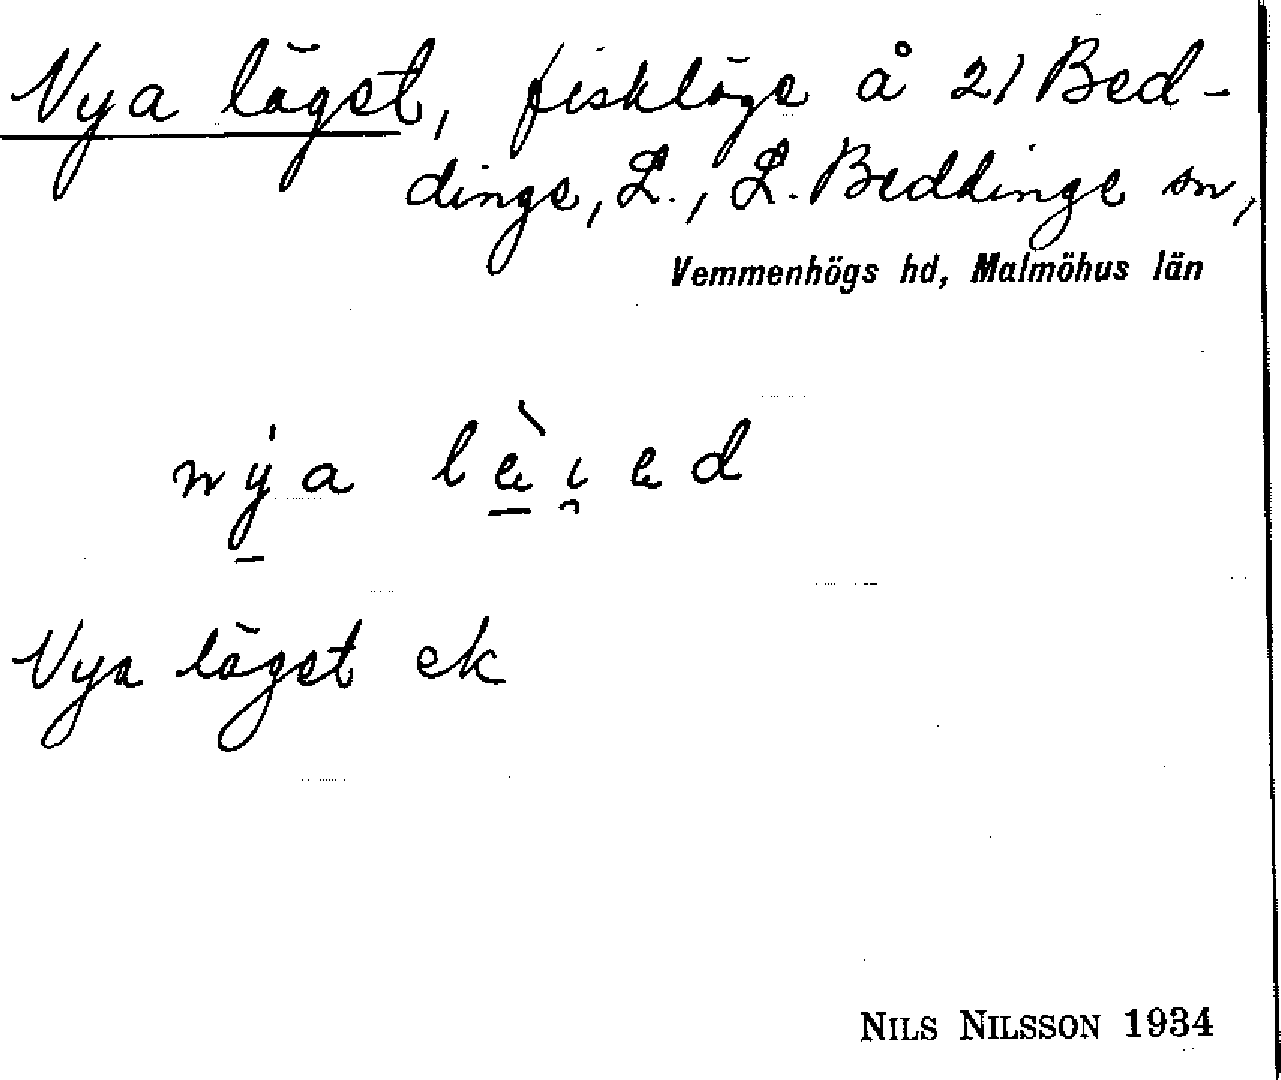 Nya läget, fiskläge å 21 Bed-
dinge, L., L. Beddinge sn,
Vemmenhögs hd, Malmöhus län
Nya läget ek
NILS NILSSON 1934